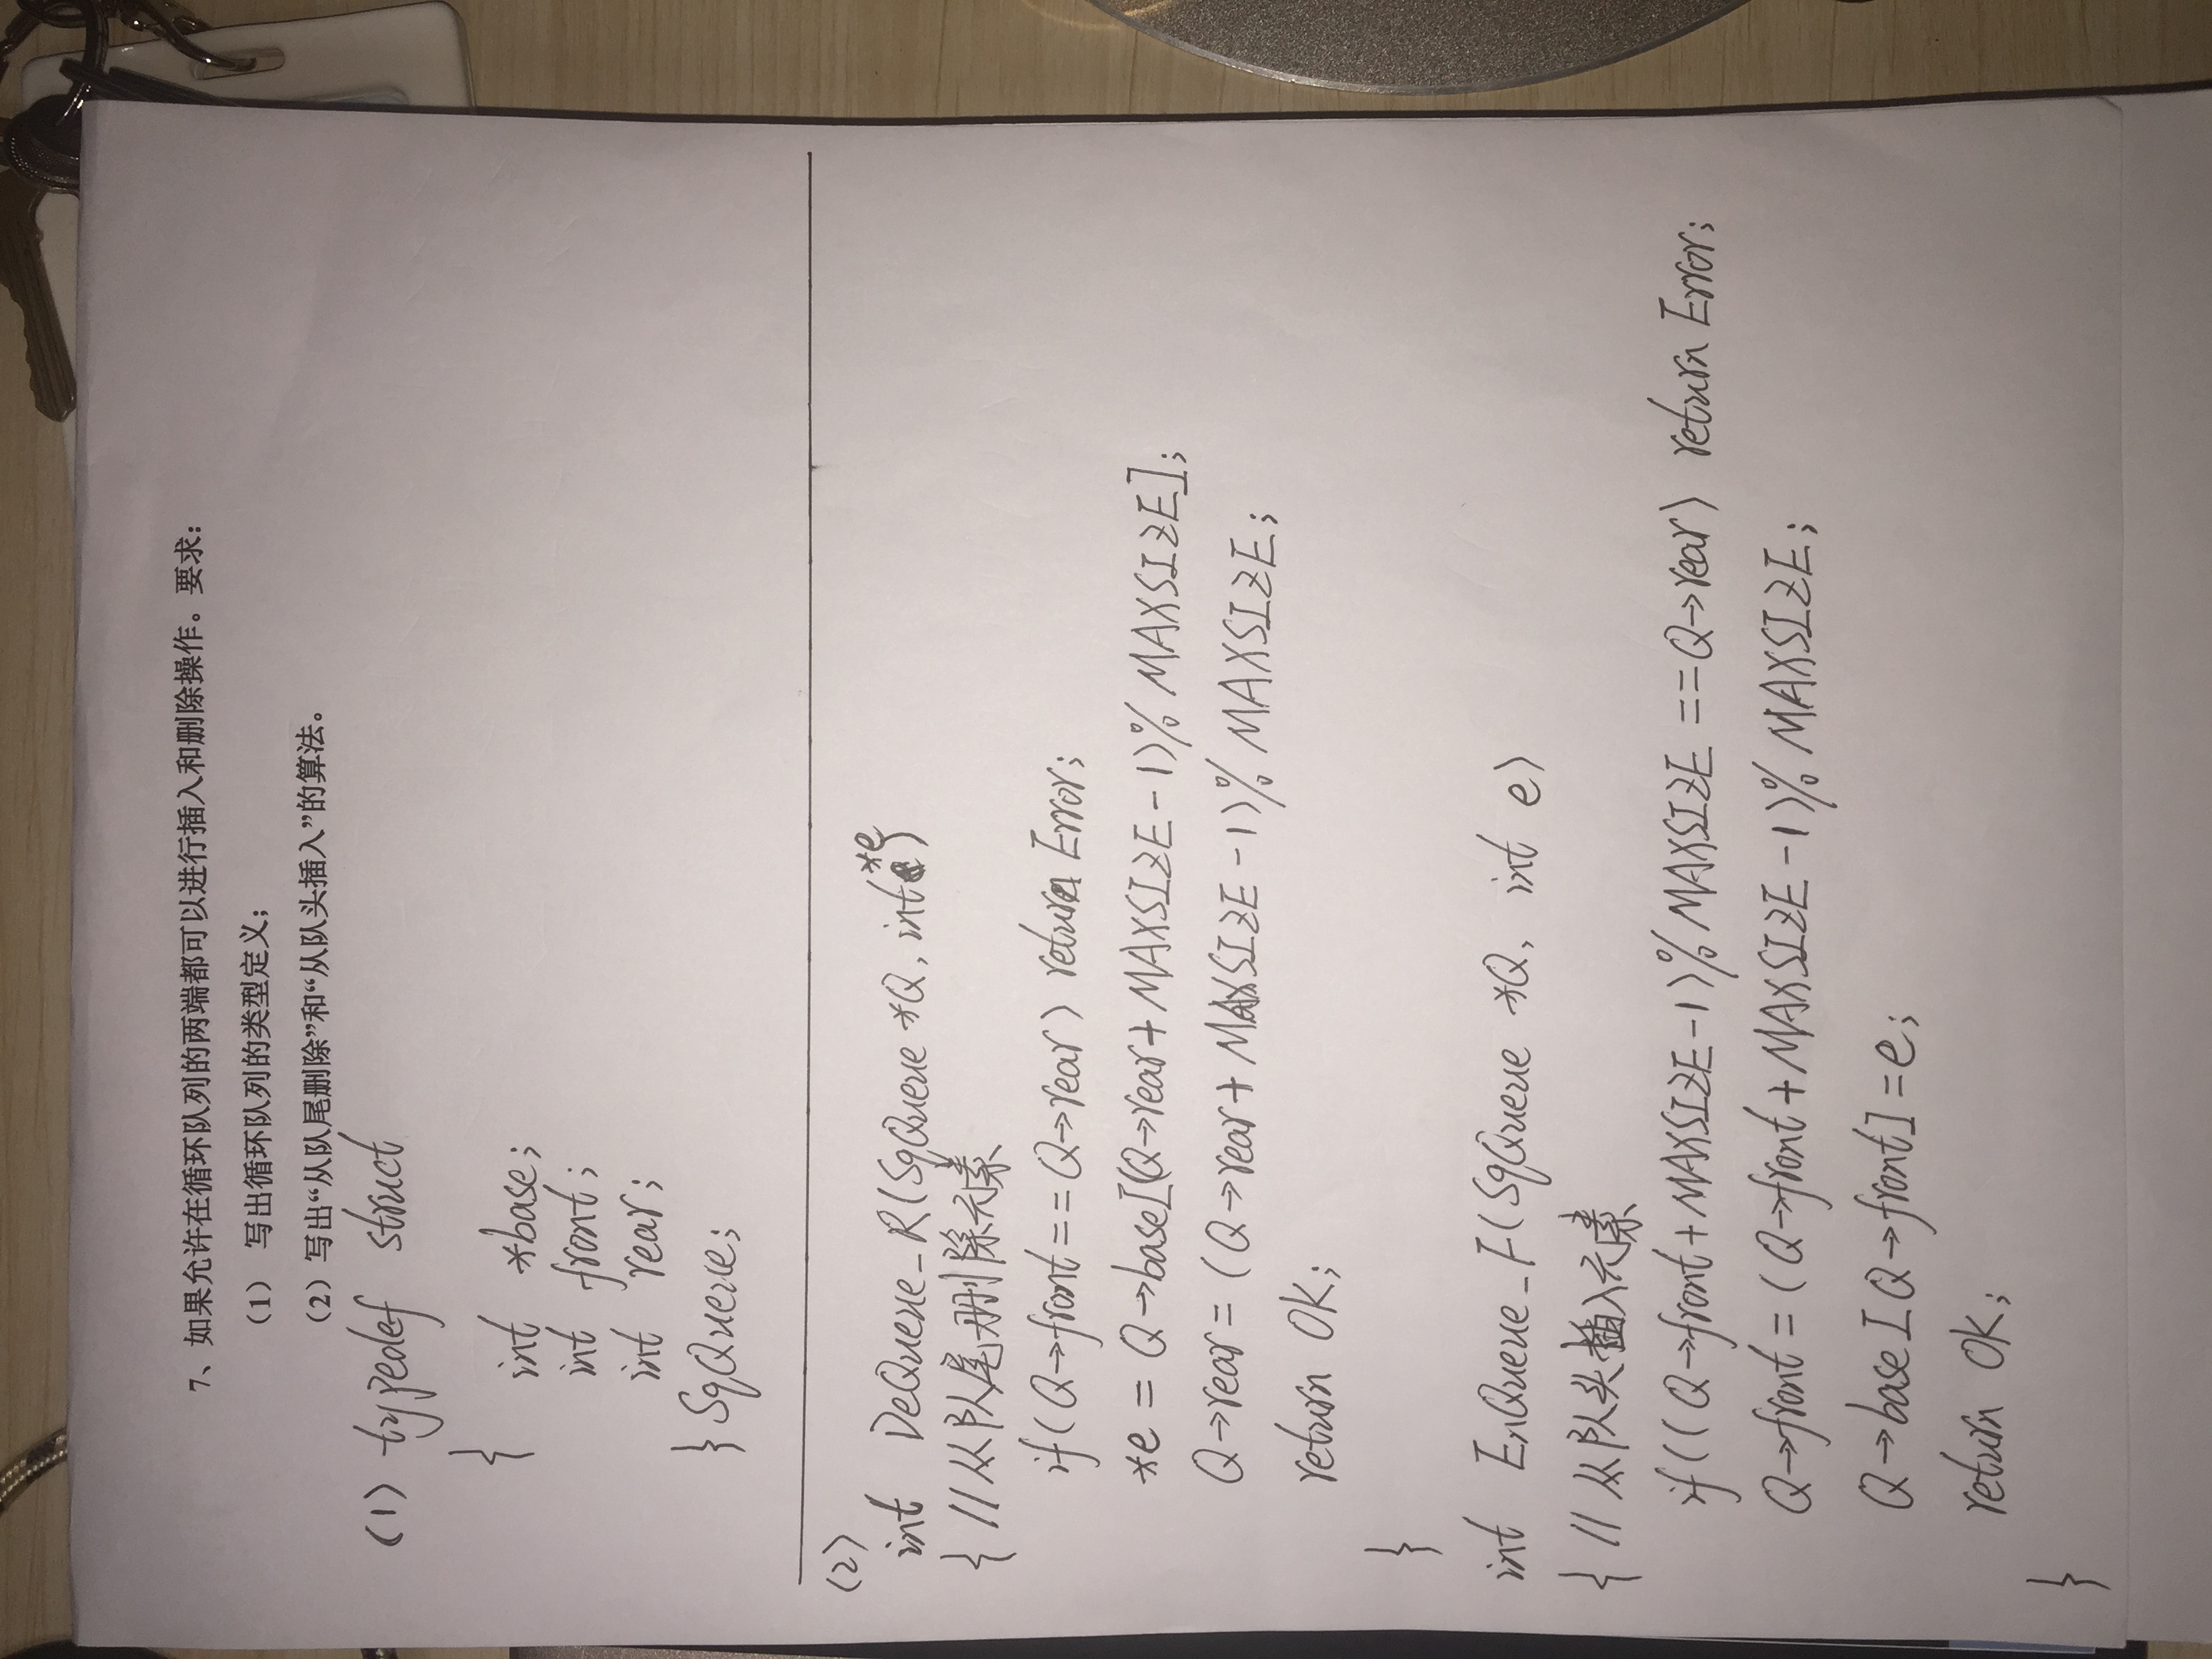 7、如果允许在循环队列的两端都可以进行插入和删除操作。要求：
（1） 写出循环队列的类型定义；
（2）写出“从队尾删除”和“从队头插入”的算法。
(1) typedef struct
{
int *base;
int front;
int rear;
}SqQueue;
(2)
int DeQueue_R(SqQueue *Q, int *e)
{ //从队尾删除元素
if(Q->front==Q->rear) return Error;
*e = Q->base[(Q->rear+MAXSIZE-1)%MAXSIZE];
Q->rear=(Q->rear+MAXSIZE-1)%MAXSIZE;
return OK;
}
int EnQueue_F(SqQueue *Q, int e)
{ //从队头插入元素
if((Q->front+MAXSIZE-1)%MAXSIZE==Q->rear) return Error;
Q->front=(Q->front+MAXSIZE-1)%MAXSIZE;
Q->base[Q->front]=e;
return OK;
}